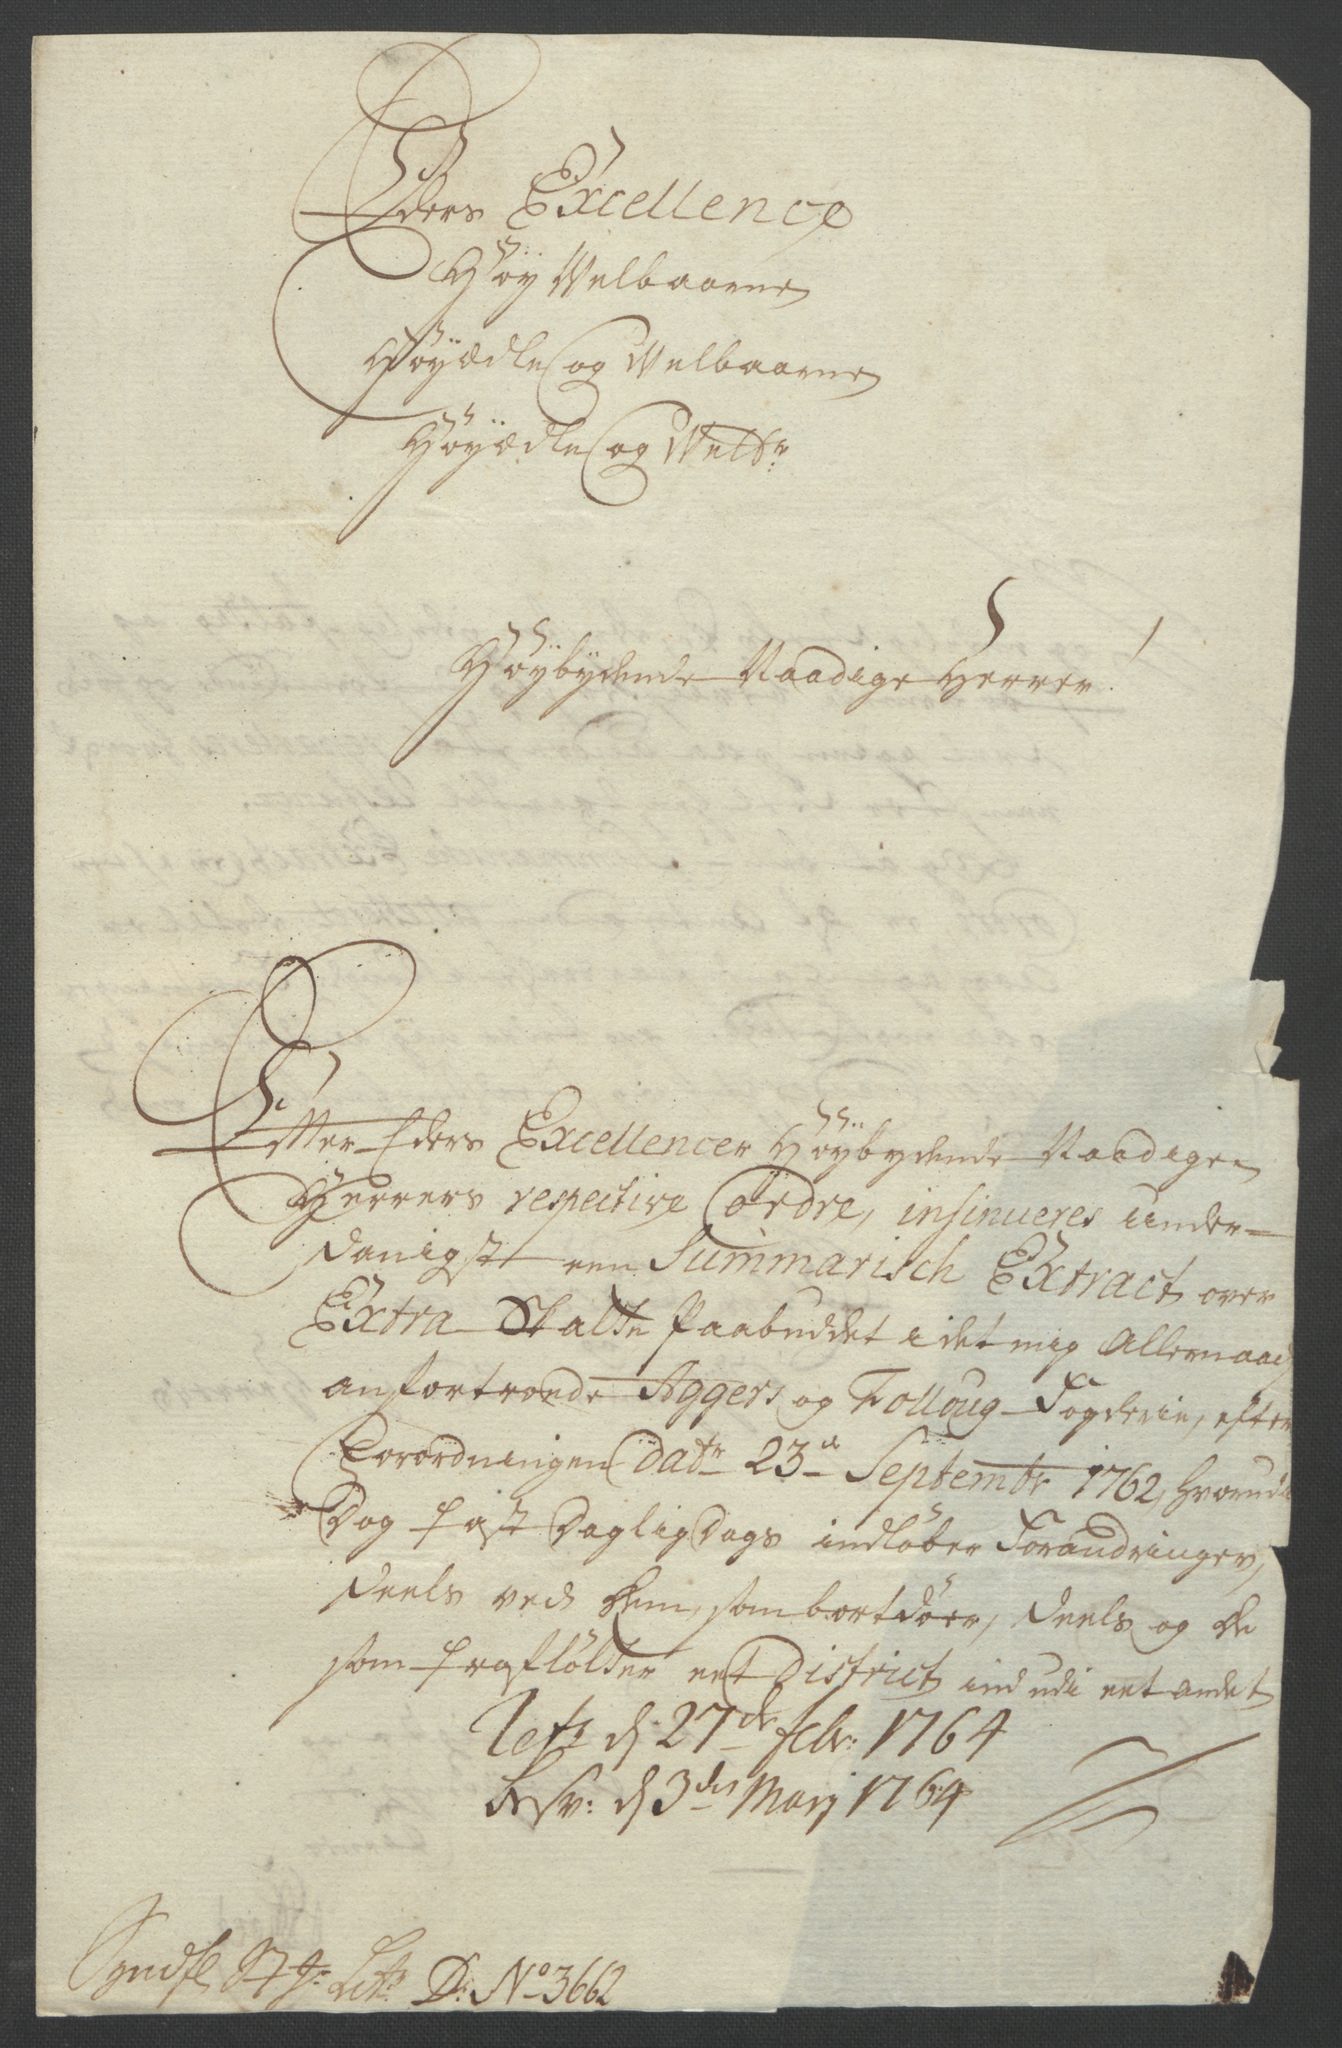 Eders Excellence
Høy Welbaarne
Høyædle og Welbaarne
Høyædle og Welbr:
Høybydende Naadige Herrer!
Efter Eders Excellencer Høybydende Naadige
Herrers respective Ordre, insinueres under-
danigst een Summarisch Extract over
Extra Skatten Paabuddet i det mig Allernaad
anfortroede Aggers og Folloug Fogderie, efter
Forordningen dat: 23de Septembr 1762, hvorudi
Dog fast Daglig Dags indløber Forandringer,
deels ved dem, som bortdøer, deels og de
som frafløtter eet District ind udi eet andet
d 27de febr: 1764
d 3die Marj 1764
Litr D: No 3662